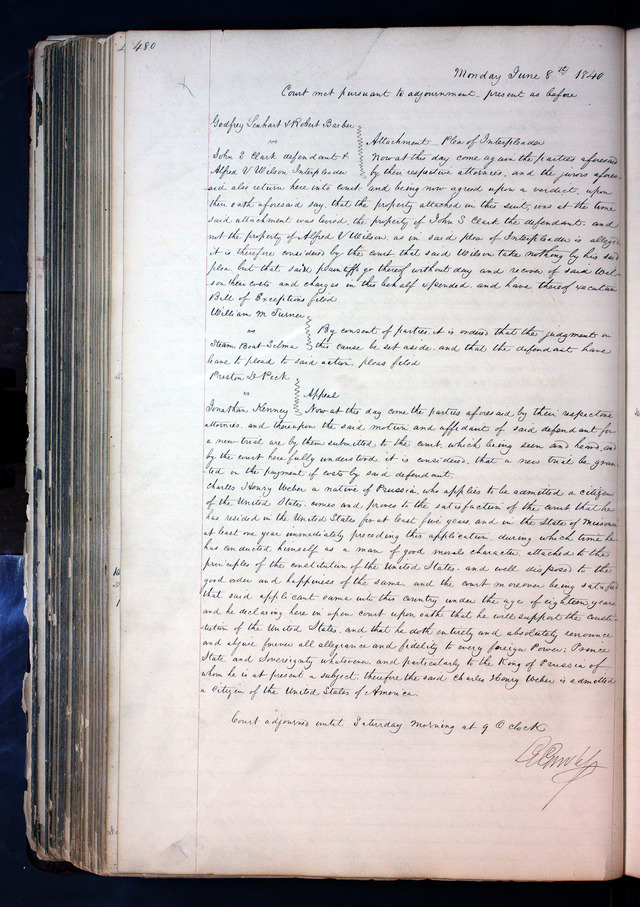 480
Monday June 8th 1840
Court met pursuant to adjournment, present as before
Godfrey Lenhart & Robert Barber
vs
Attachment Plea of Interpleader
John S Clark defendant &
Now at this day come again the parties aforesaid
Alfred V Wilson Interpleader
by their respective attornies, and the jurors afore-
said also return here into court, and being now agreed upon a verdict, upon
their oath aforesaid say, that the property attached in this suit, was at the time
said attachment was levied the property of John S Clark the defendant, and
not the property of Alfred V Wilson, as in said plea of Interpleader is alleged
it is therefore considered by the court that said Wilson take nothing by his said
plea, but that said plaintiffs go thereof without day and recover of said Wil-
son their costs and charges in this behalf expended, and have thereof execution
Bill of Exceptions filed
William M Turner
vs
By consent of parties, it is ordered that the judgment in
Steam Boat Selma
this cause be set aside, and that the defendant have
leave to plead to said action, pleas filed
Preston D Peck
vs
Appeal
Jonathan Kenney
Now at this day come the parties aforesaid by their respective
attornies, and thereupon the said motion and affidavit of said defendant for
a new trial are by them submitted to the court, which being seen and heard, and
by the court here fully understood, it is considered, that a new trial be gran-
ted on the payment of costs by said defendant.
Charles Henry Weber a native of Prussia, who applies to be admitted a citizen
of the United States, comes and proves to the satisfaction of the court that he
has resided in the United States for at least five years, and in the State of Missouri
at least one year immediately preceding this application, during which time he
has conducted himself as a man of good moral character, attached to the
principles of the constitution of the United States, and well disposed to the
good order and happiness of the same, and the court moreover being satisfied
that said applicant came into this country under the age of eighteen years
and he declaring here in open court upon oath that he will support the consti-
tution of the United States, and that he doth entirely and absolutely renounce
and abjure forever all allegiance and fidelity to every foreign Power, Prince
State and Sovereignty whatever, and particularly to the King of Prussia of
whom he is at present a subject, therefore the said Charles Henry Weber is admitted
a citizen of the United States of America.
Court adjourned until Saturday morning at 9 O clock